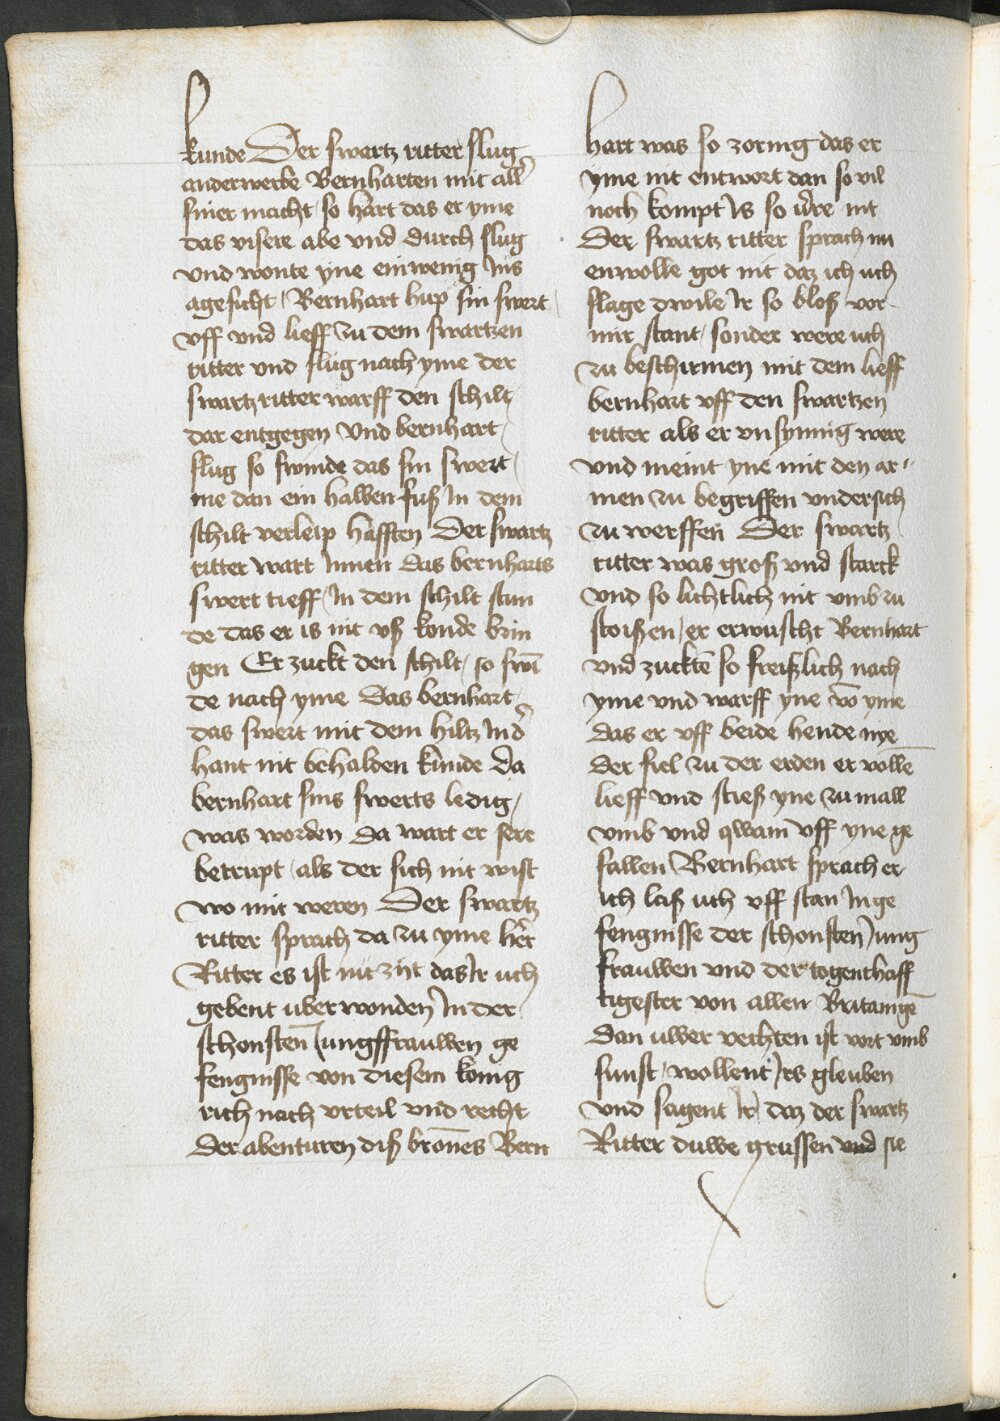 kunde Der swartz ritter slug
anderwerbe Bernharten mit all'
siner macht so hart das er yme
das visere abe vnd durch slug
vnd wonte yne ein wenig Ins
agesicht / Bernhart hup sin swert
vff vnd lieff zu dem swartzen
ritter vnd slug nach yme der
swartz ritter warff den schilt
dar entgegen Vnd bernhart
slug so swinde das sin swert
me dan ein halben fuß In dem
schilt verleip hafften Der swartz
ritter wart Innen das bernharts
swert tieff In dem schilt stun
de das er is nit vß konde brin
gen Er zuckt den schilt so swī
de nach yme Das bernhart
das swert mit dem hiltz In d'
hant nit behalden kunde Da
bernhart sins swerts ledig
was worden Da wart er sere
betrupt als der sich nit wist
wo mit weren Der swartz
ritter sprach da zu yme her
Ritter es ist nit zijt das Ir uch
gebent uberwonden In der
schonsten Jungffrauwen ge
fengnisse von diesem konig
rich nach vrteil vnd recht
der abenturen diß bronēs Bern
hart was so zornig das er
yme nit entwort dan so vil
noch kompt Is so were nit
Der swartz ritter sprach nu
enwolle got nit daz ich uch
slage dwile Ir so bloß vor
mir stant / sonder were uch
zu beschirmen mit dem lieff
bernhart vff den swartzen
ritter als er vnsynnig were
vnd meint yne mit den ar"
men zu begriffen vndersich
zu werffen Der swartz
ritter was groß vnd starck
vnd so lichtlich nit vmb zu
stoißen / er erwuscht Bernhart
vnd zuckte so freißlich nach
yme vnd warff yne vō yme
das er vff beide hende nye
der fiel zu der erden er wolle
lieff vnd stieß yne zu mall
vmb vnd qwam vff yne ge
fallen / Bernhart sprach er
ich laß uch vff stan In ge
fengnisse der schonsten Jung
frauwen vnd der togenthaff
tigester von allen Britanigē
dan uwer vechten ist vort vmb
sunst / wollent Irs gleuben
vnd sagent Ir daz der swartz
Ritter duwe grussen vnd sie